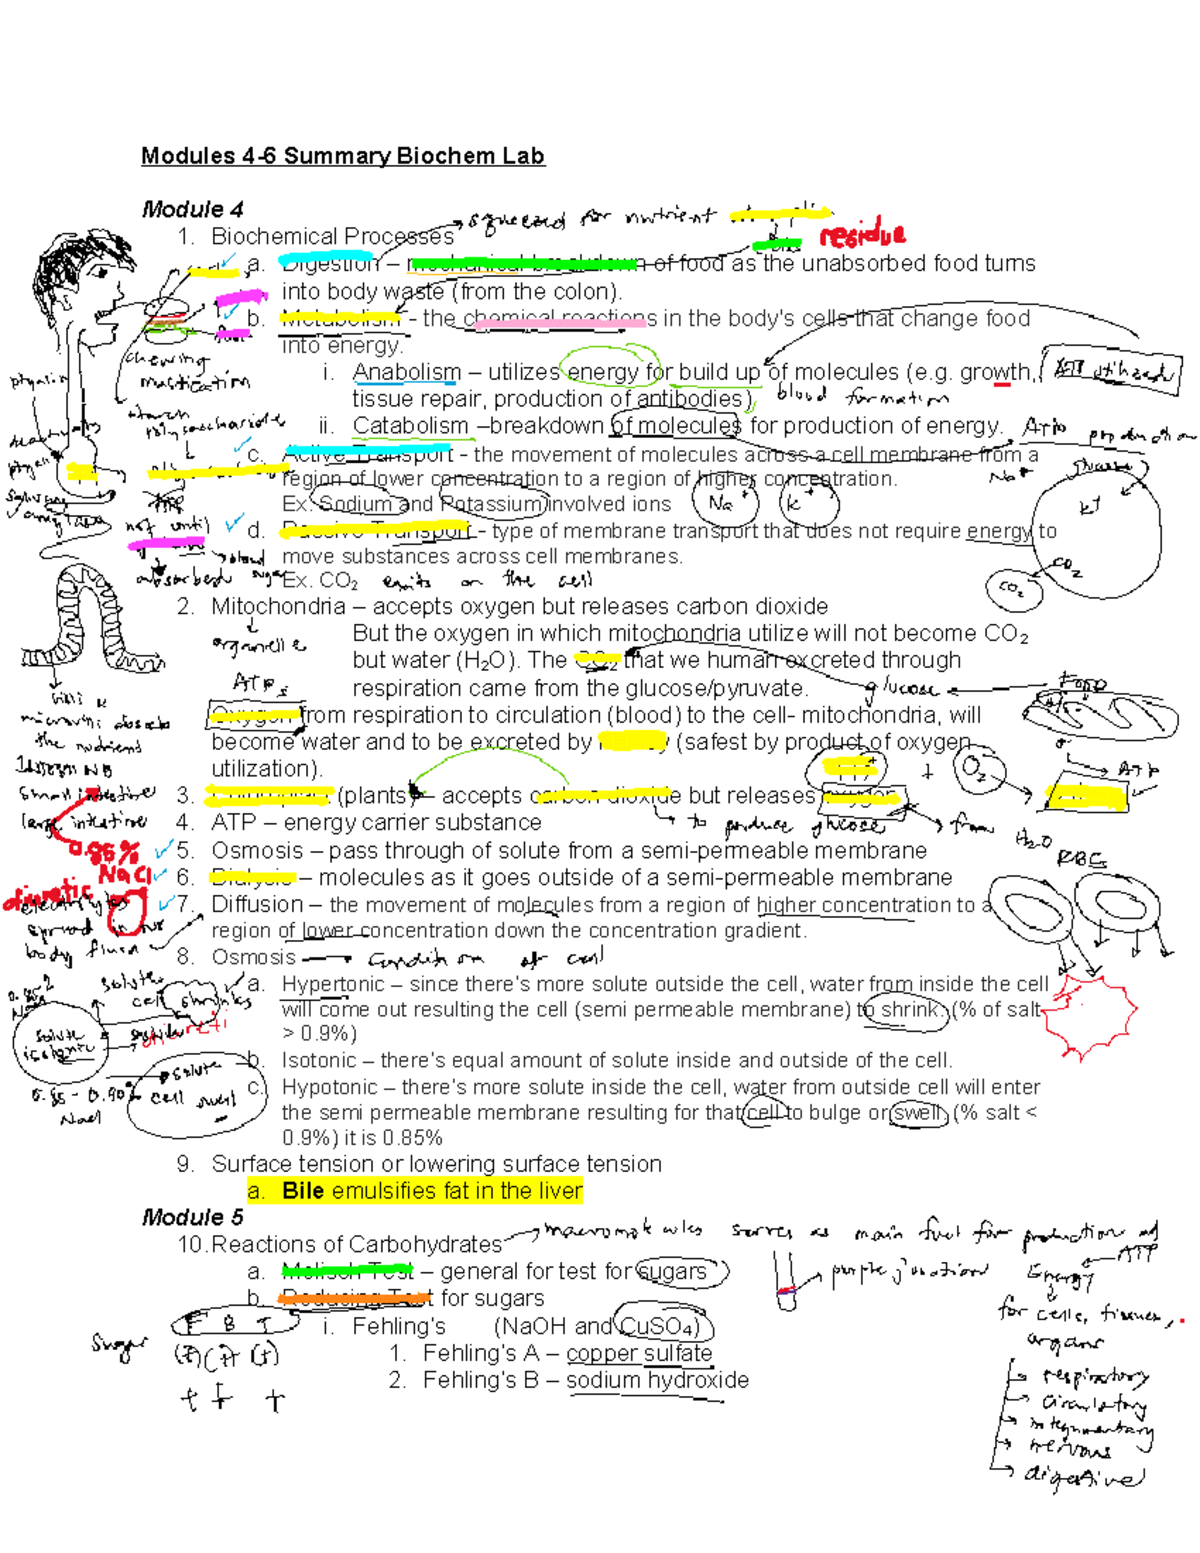 Modules 4-6 Summary Biochem Lab
Module 4
squeezed for nutrient
residue
1. Biochemical Processes
a. Digestion – mechanical breakdown of food as the unabsorbed food turns
into body waste (from the colon).
b. Metabolism - the chemical reactions in the body's cells that change food
into energy.
chewing
mastication
i. Anabolism – utilizes energy for build up of molecules (e.g. growth,
ATP utilized
tissue repair, production of antibodies)
blood formation
ptyalin
starch
polysaccharide
ii. Catabolism –breakdown of molecules for production of energy.
ATP production
c. Active Transport - the movement of molecules across a cell membrane from a
region of lower concentration to a region of higher concentration.
Na+
glucose
K+
Ex. Sodium and Potassium involved ions
Na+
K+
not until
d. Passive Transport - type of membrane transport that does not require energy to
move substances across cell membranes.
blood
sugar
absorbed
Ex. CO₂ exits on the cell
CO2
CO2
2. Mitochondria – accepts oxygen but releases carbon dioxide
organelle
But the oxygen in which mitochondria utilize will not become CO₂
but water (H₂O). The CO₂ that we human excreted through
respiration came from the glucose/pyruvate.
glucose
Food
ATPs
Oxygen from respiration to circulation (blood) to the cell- mitochondria, will
become water and to be excreted by (safest by product of oxygen
utilization).
villi &
microvilli absorb
the nutrients
small intestine
large intestine
+
O2
ATP
3. (plants) – accepts carbon dioxide but releases oxygen
4. ATP – energy carrier substance
to produce glucose
from
H2O
RBC
0.85%
NaCl
5. Osmosis – pass through of solute from a semi-permeable membrane
6. Dialysis – molecules as it goes outside of a semi-permeable membrane
7. Diffusion – the movement of molecules from a region of higher concentration to a
region of lower concentration down the concentration gradient.
diuretic
electrolytes
spread in our
body fluid
8. Osmosis
condition of cell
a. Hypertonic – since there's more solute outside the cell, water from inside the cell
will come out resulting the cell (semi permeable membrane) to shrink. (% of salt
> 0.9%)
solute
cell shrinks
solute
isotonic
b. Isotonic – there's equal amount of solute inside and outside of the cell.
c. Hypotonic – there's more solute inside the cell, water from outside cell will enter
the semi permeable membrane resulting for that cell to bulge or swell. (% salt <
0.9%) it is 0.85%
solute
cell swell
0.85 - 0.90%
NaCl
9. Surface tension or lowering surface tension
a. Bile emulsifies fat in the liver
Module 5
10. Reactions of Carbohydrates
macromolecules serves as main fuel for production of
ATP
Energy
for cells, tissues,
organs
respiratory
circulatory
integumentary
nervous
digestive
a. Molisch Test – general for test for sugars
purple junction
b. Reducing Test for sugars
F B T
i. Fehling's (NaOH and CuSO₄)
sugar
(+) (+) (+)
1. Fehling's A – copper sulfate
2. Fehling's B – sodium hydroxide
+ + +